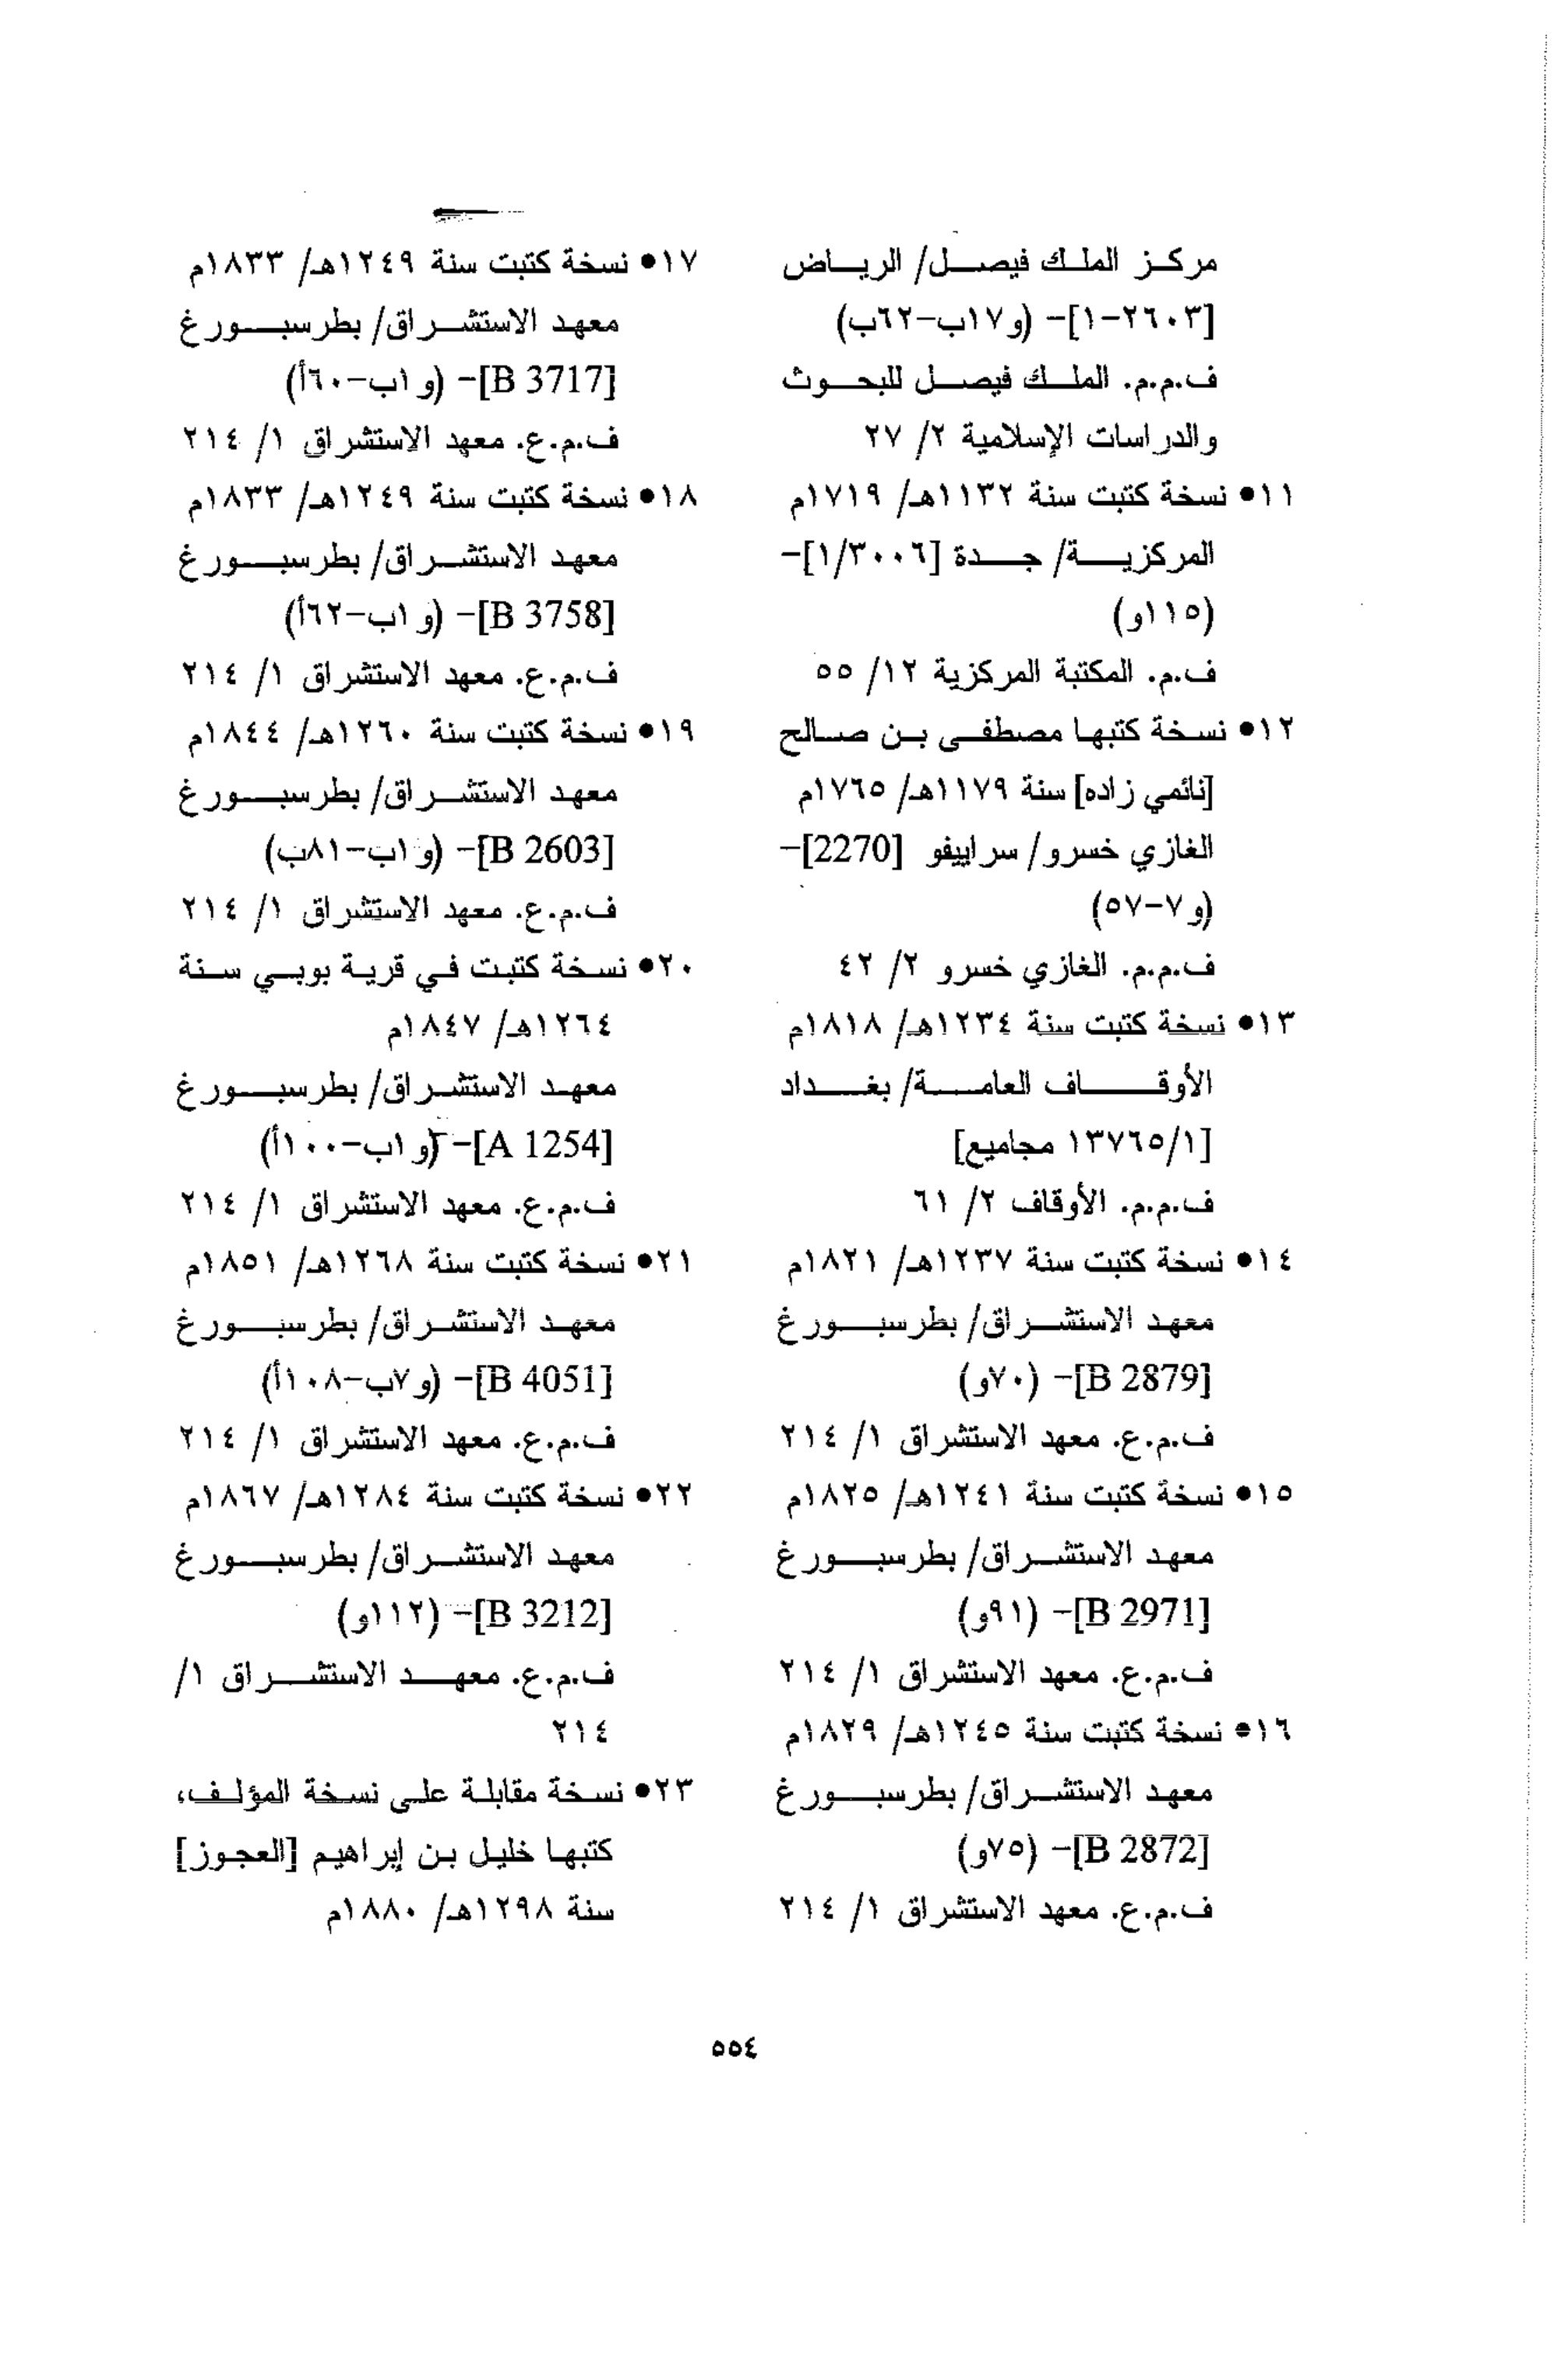 مركز الملك فيصل/ الرياض
[٢٦٠٣-١]- (و١٧ب-٦٢ب)
ف.م.م. الملك فيصل للبحوث
والدراسات الإسلامية ٢/ ٢٧
١١• نسخة كتبت سنة ١١٣٢هـ/ ١٧١٩م
المركزية/ جدة [١/٣٠٠٦]-
(١١٥و)
ف.م. المكتبة المركزية ١٢/ ٥٥
١٢• نسخة كتبها مصطفى بن صالح
[نائمي زاده] سنة ١١٧٩هـ/ ١٧٦٥م
الغازي خسرو/ سراييفو [2270]-
(و٧-٥٧)
ف.م.م. الغازي خسرو ٢/ ٤٢
١٣• نسخة كتبت سنة ١٢٣٤هـ/ ١٨١٨م
الأوقاف العامة/ بغداد
[١٣٧٦٥/١ مجاميع]
ف.م.م. الأوقاف ٢/ ٦١
١٤• نسخة كتبت سنة ١٢٣٧هـ/ ١٨٢١م
معهد الاستشراق/ بطرسبورغ
[B 2879]- (٧٠و)
ف.م.ع. معهد الاستشراق ١/ ٢١٤
١٥• نسخة كتبت سنة ١٢٤١هـ/ ١٨٢٥م
معهد الاستشراق/ بطرسبورغ
[B 2971]- (٩١و)
ف.م.ع. معهد الاستشراق ١/ ٢١٤
١٦• نسخة كتبت سنة ١٢٤٥هـ/ ١٨٢٩م
معهد الاستشراق/ بطرسبورغ
[B 2872]- (٧٥و)
ف.م.ع. معهد الاستشراق ١/ ٢١٤
١٧• نسخة كتبت سنة ١٢٤٩هـ/ ١٨٣٣م
معهد الاستشراق/ بطرسبورغ
[B 3717]- (و١ب-٦٠أ)
ف.م.ع. معهد الاستشراق ١/ ٢١٤
١٨• نسخة كتبت سنة ١٢٤٩هـ/ ١٨٣٣م
معهد الاستشراق/ بطرسبورغ
[B 3758]- (و١ب-٦٢أ)
ف.م.ع. معهد الاستشراق ١/ ٢١٤
١٩• نسخة كتبت سنة ١٢٦٠هـ/ ١٨٤٤م
معهد الاستشراق/ بطرسبورغ
[B 2603]- (و١ب-٨١ب)
ف.م.ع. معهد الاستشراق ١/ ٢١٤
٢٠• نسخة كتبت في قرية بوبي سنة
١٢٦٤هـ/ ١٨٤٧م
معهد الاستشراق/ بطرسبورغ
[A 1254]- (و١ب-١٠٠أ)
ف.م.ع. معهد الاستشراق ١/ ٢١٤
٢١• نسخة كتبت سنة ١٢٦٨هـ/ ١٨٥١م
معهد الاستشراق/ بطرسبورغ
[B 4051]- (و٧ب-١٠٨أ)
ف.م.ع. معهد الاستشراق ١/ ٢١٤
٢٢• نسخة كتبت سنة ١٢٨٤هـ/ ١٨٦٧م
معهد الاستشراق/ بطرسبورغ
[B 3212]- (١١٢و)
ف.م.ع. معهد الاستشراق ١/
٢١٤
٢٣• نسخة مقابلة على نسخة المؤلف،
كتبها خليل بن إبراهيم [العجوز]
سنة ١٢٩٨هـ/ ١٨٨٠م
٥٥٤